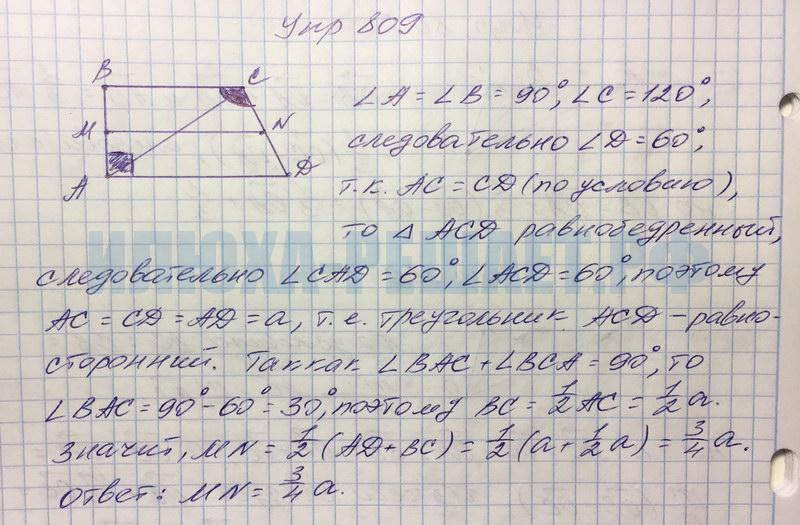 Упр 809
B C
M N
A D
∠A = ∠B = 90°, ∠C = 120°,
следовательно ∠D = 60°,
т.к. AC = CD (по условию),
то △ ACD равнобедренный,
следовательно ∠CAD = 60°, ∠ACD = 60°, поэтому
AC = CD = AD = a, т.е. треугольник ACD – равно-
сторонний. Так как ∠BAC + ∠BCA = 90°, то
∠BAC = 90° – 60° = 30°, поэтому BC = 1/2 AC = 1/2 a.
Значит, MN = 1/2 (AD + BC) = 1/2 (a + 1/2 a) = 3/4 a.
Ответ: MN = 3/4 a.